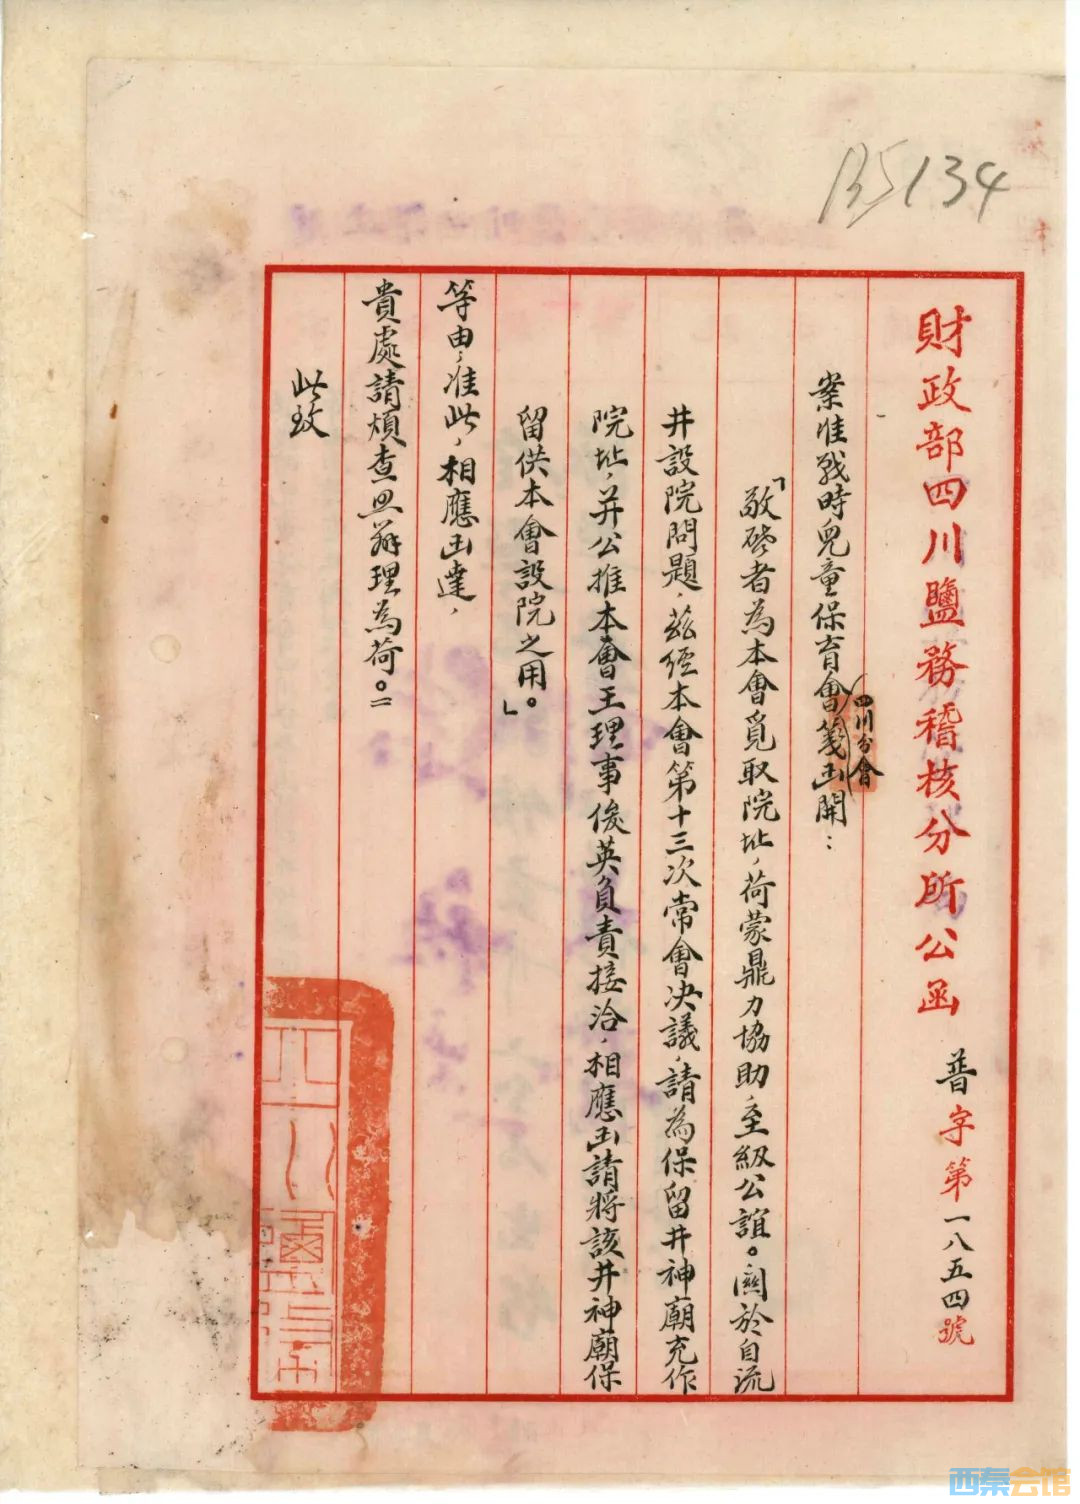 B5134
財政部四川鹽務稽核分所公函 普字第一八五四號
案准戰時兒童保育會四川分會箋函開：
「敬啓者為本會覓取院址，荷蒙鼎力協助，至級公誼。關於自流
井設院問題，茲經本會第十三次常會決議，請為保留井神廟充作
院址，并公推本會王理事俊英負責接洽，相應函請將該井神廟保
留供本會設院之用。」
等由，准此，相應函達，
貴處請煩查照辦理為荷。＝
此致
西秦会馆